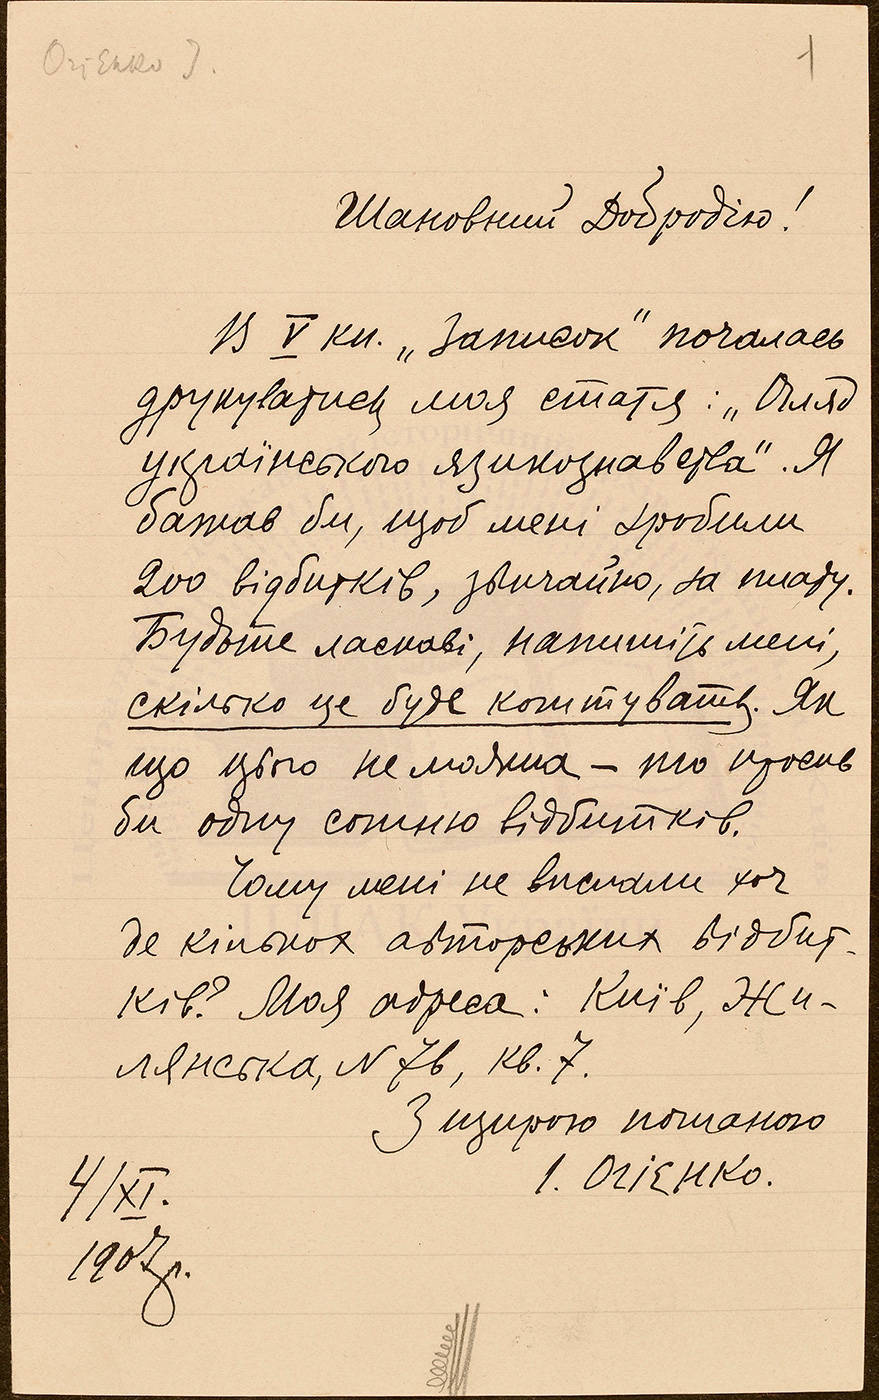 Огієнко І.
1
Шановний Добродію!
В V кн. „Записок" почалась
друкуватись моя статя: „Огляд
українського язикознавства". Я
бажав би, щоб мені зробили
200 відбитків, звичайно, за плату.
Будьте ласкаві, напишіть мені,
скілько це буде коштувать. Як
що цього не можна – то просив
би одну сотню відбитків.
Чому мені не вислали хоч
де кількох авторських відбит-
ків? Моя адреса: Київ, Жи-
лянська, N 7в, кв. 7.
З щирою пошаною
І. Огієнко.
4/XI.
1907 р.